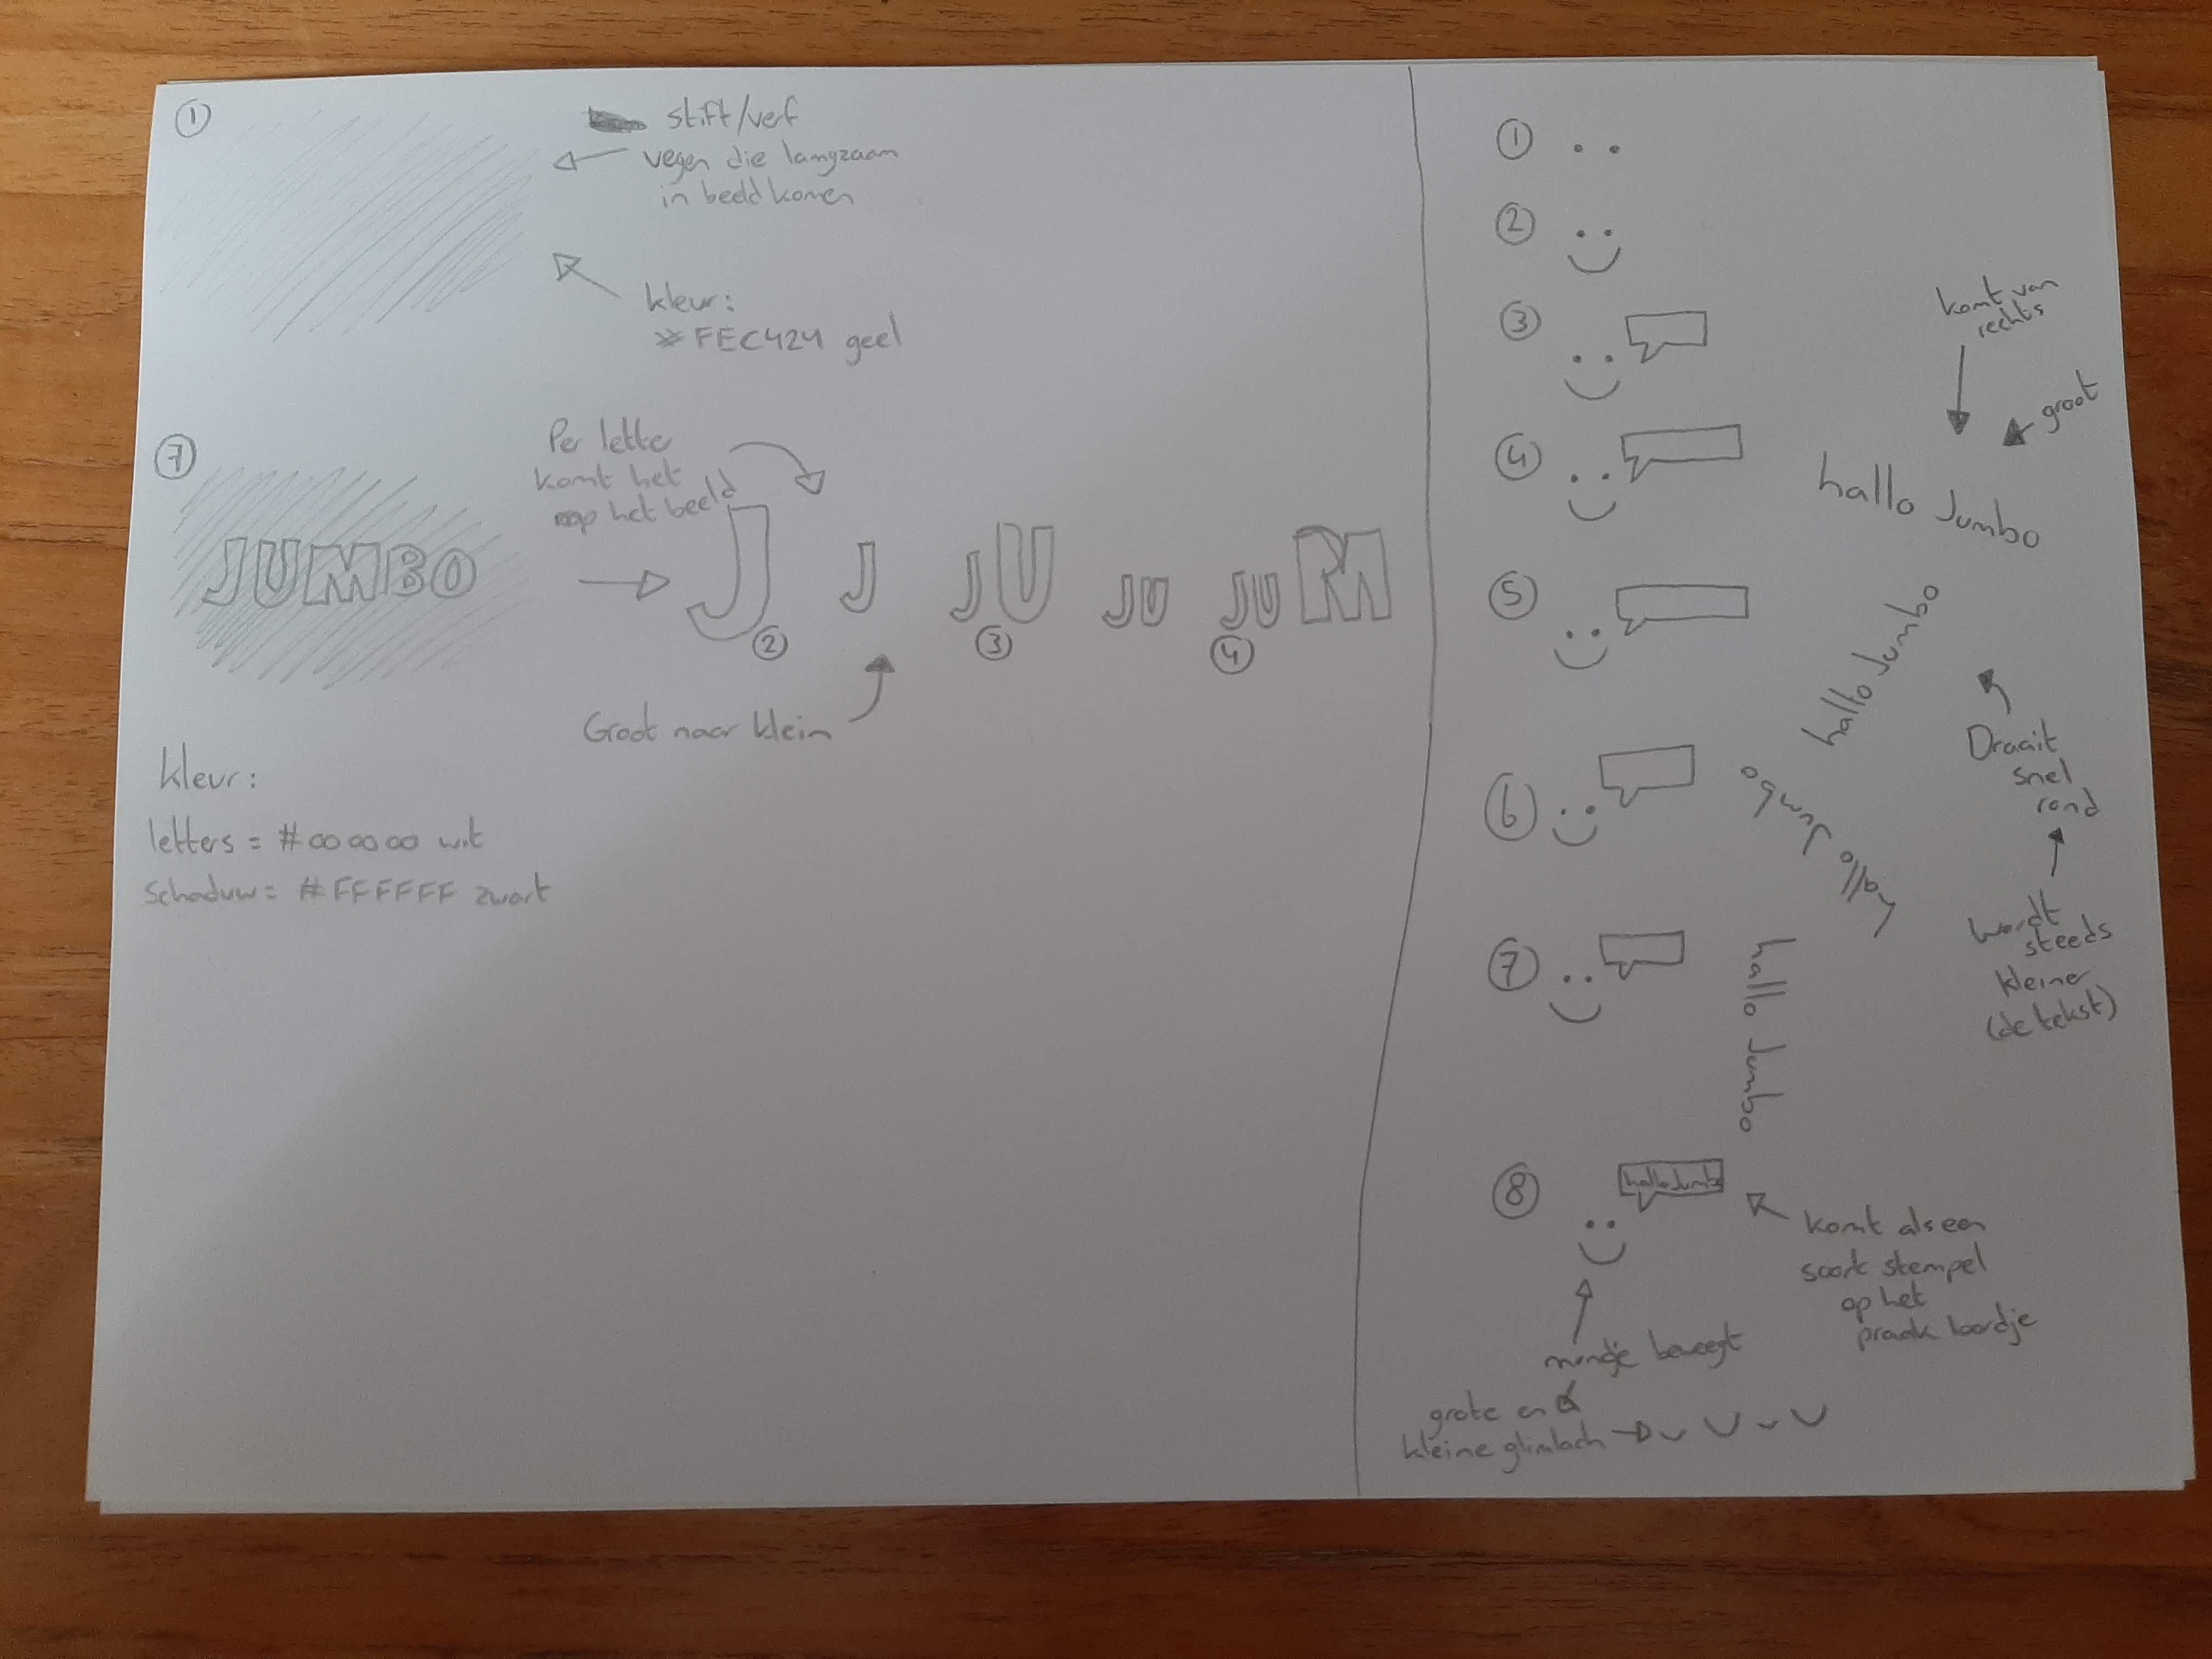 1
stift/verf
vegen die langzaam
in beeld komen
kleur:
#FEC424 geel
7
Per letter
komt het
op het beeld
JUMBO
J J JU JU JUM
2 3 4
Groot naar klein
kleur:
letters = #000000 wit
Schaduw = #FFFFFF zwart
1
2
3
komt van
rechts
groot
4
hallo Jumbo
5
hallo Jumbo
Draait
snel
rond
6
hallo Jumbo
wordt
steeds
kleiner
(de tekst)
7
hallo Jumbo
8
hallo Jumbo
komt als een
soort stempel
op het
praat bordje
mondje beweegt
grote en
kleine glimlach